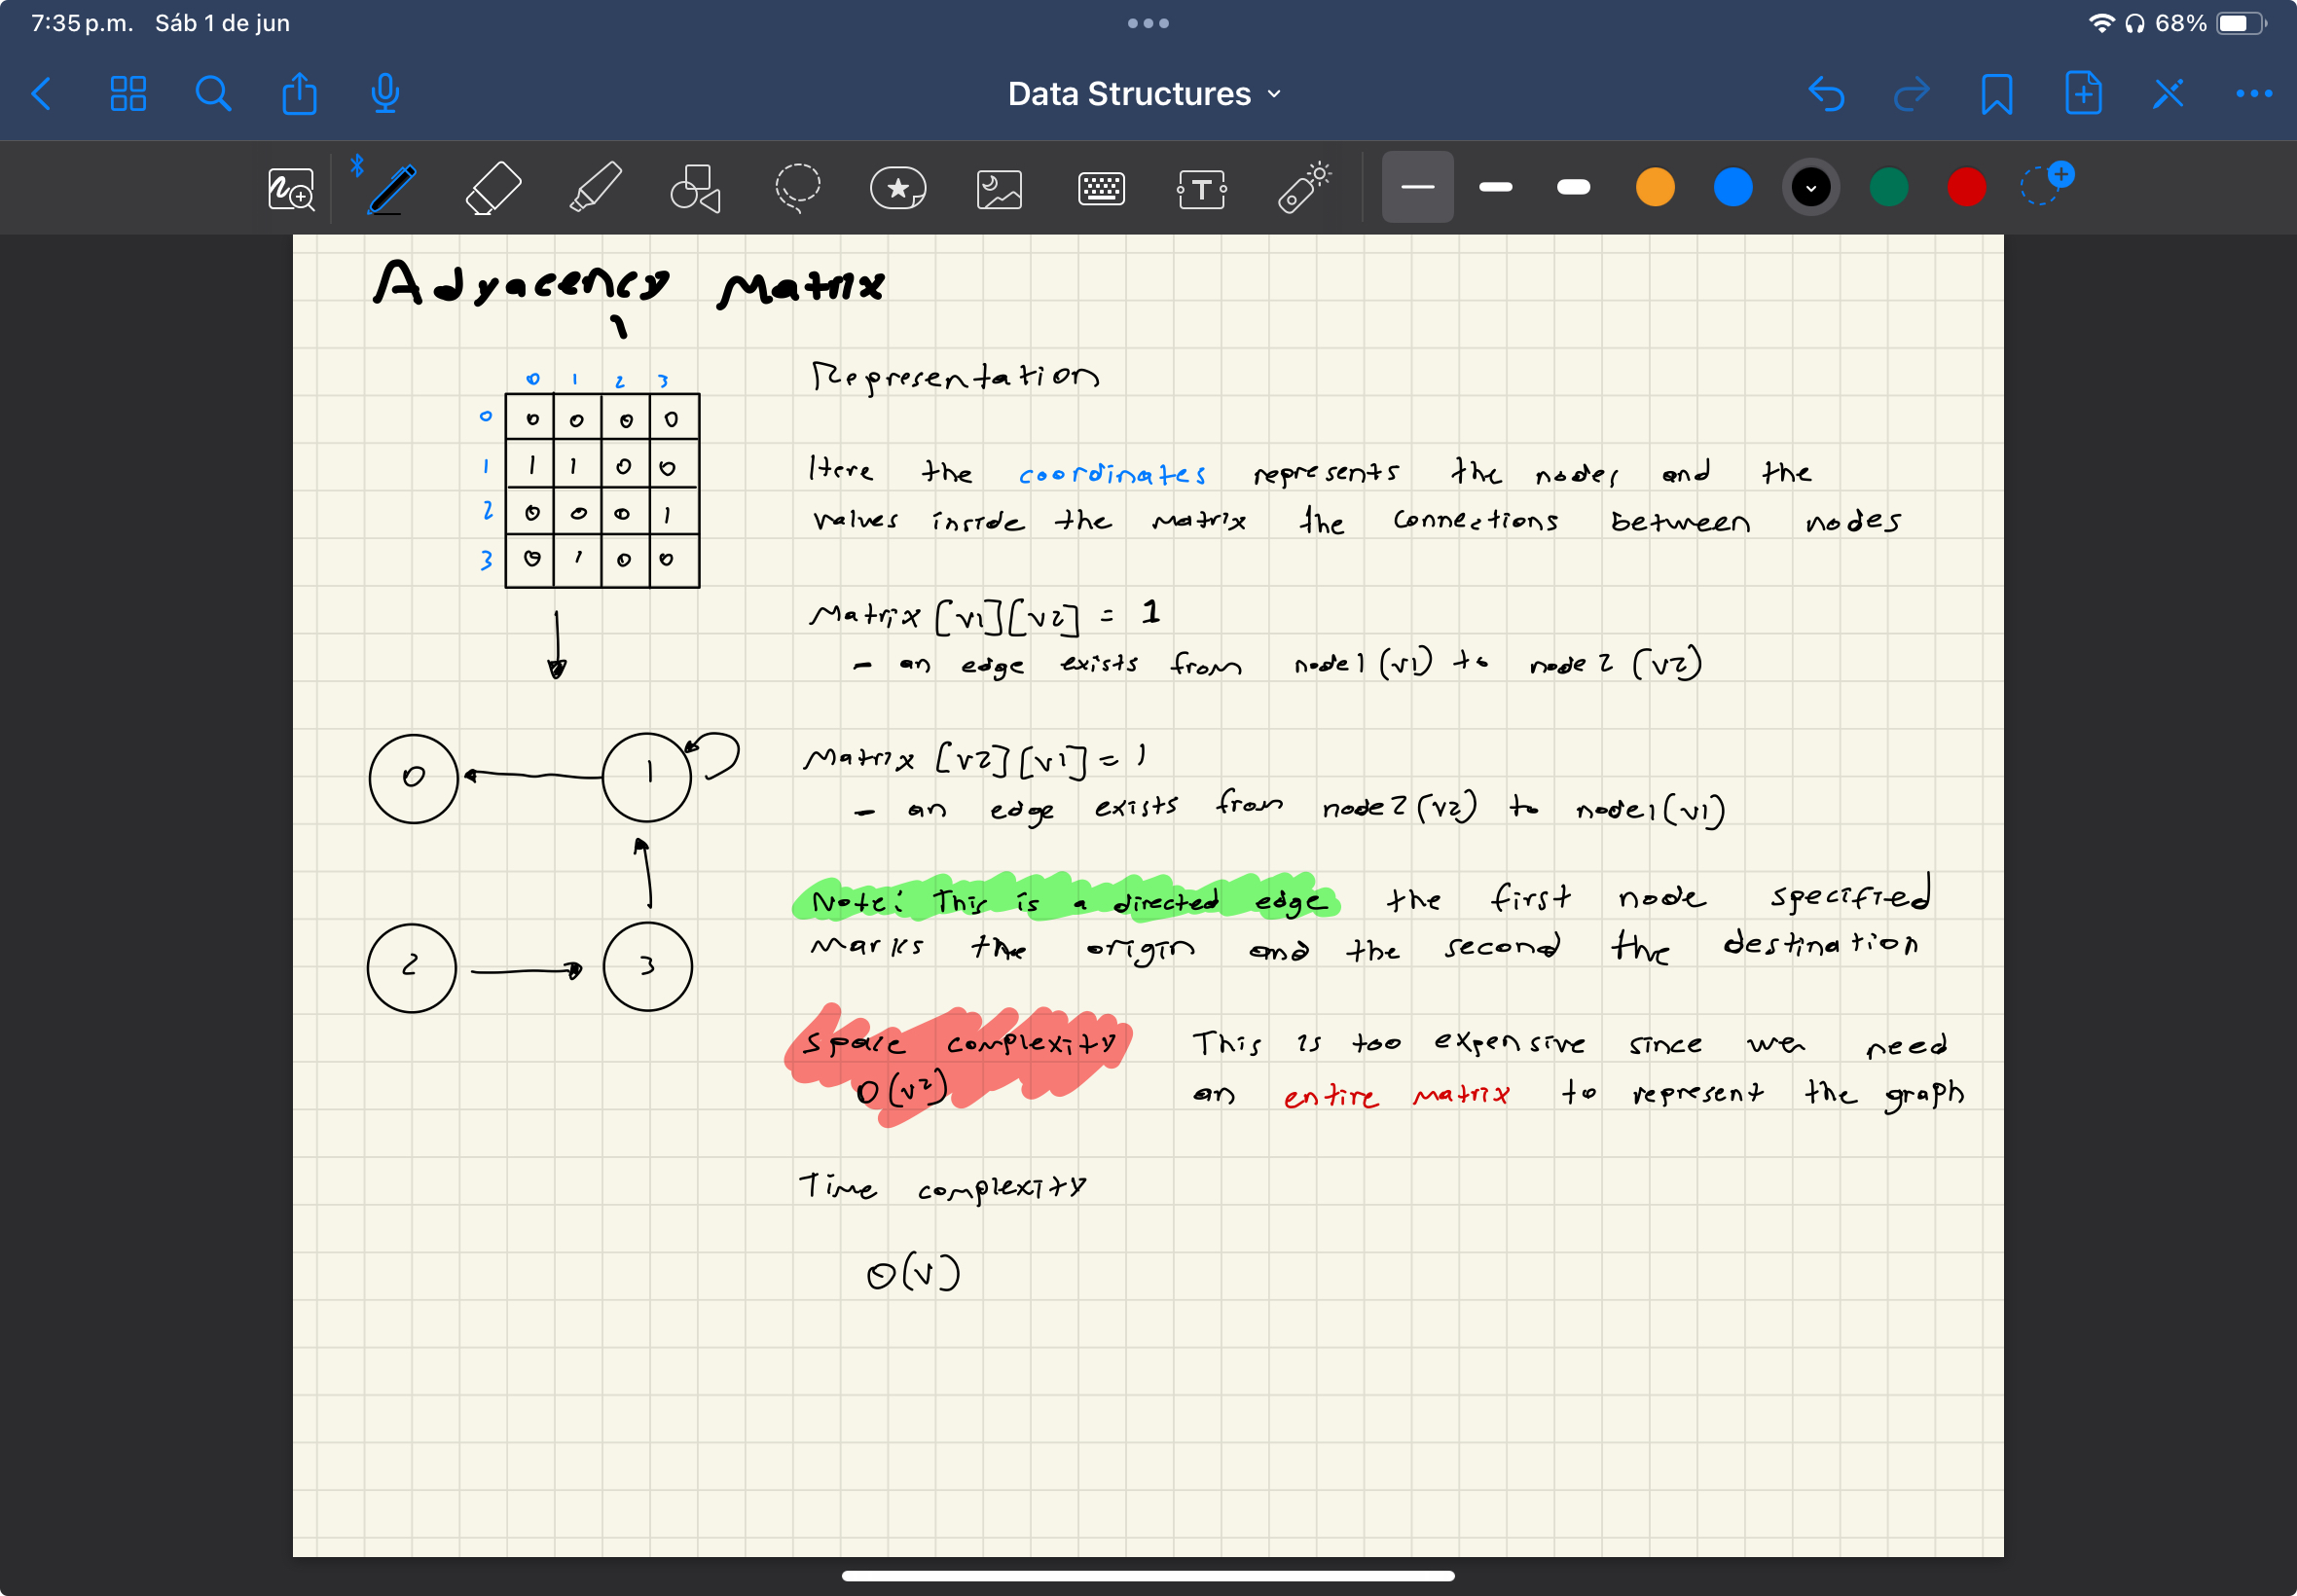 7:35 p.m. Sáb 1 de jun
68%
Data Structures
T
Adyacency Matrix
0 1 2 3
0 0 0 0 0
1 1 1 0 0
2 0 0 0 1
3 0 1 0 0
0
1
2
3
Representation
Here the coordinates represents the nodes and the
values inside the matrix the connections between nodes
Matrix [v1][v2] = 1
- an edge exists from node1 (v1) to node 2 (v2)
Matrix [v2][v1] = 1
- an edge exists from node2 (v2) to node1 (v1)
Note: This is a directed edge the first node specified
marks the origin and the second the destination
Space complexity This is too expensive since we need
O(v²) an entire matrix to represent the graph
Time complexity
O(v)